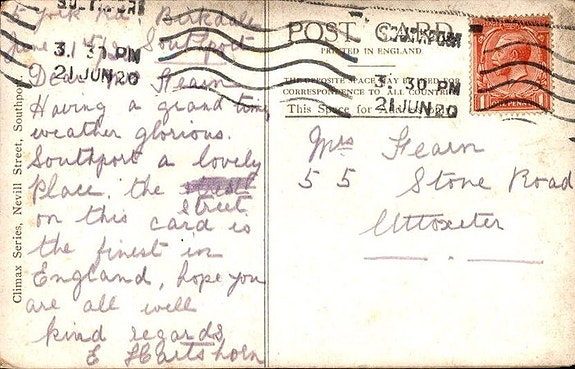 5 York Rd. Birkdale
June 21st Southport
Dear Mrs Fearn
Having a grand time
weather glorious.
Southport a lovely
place, the
street
on this card is
the finest in
England, hope you
are all well
kind regards
E Hartshorn
Climax Series, Nevill Street, Southport.
POST CARD
PRINTED IN ENGLAND
THE OPPOSITE SPACE MAY BE USED FOR
CORRESPONDENCE TO ALL COUNTRIES
This Space for Address only
SOUTHPORT
3. 30 PM
21 JUN 20
SOUTHPORT
3. 30 PM
21 JUN 20
1 PENNY
Mrs Fearn
55 Stone Road
Uttoxeter